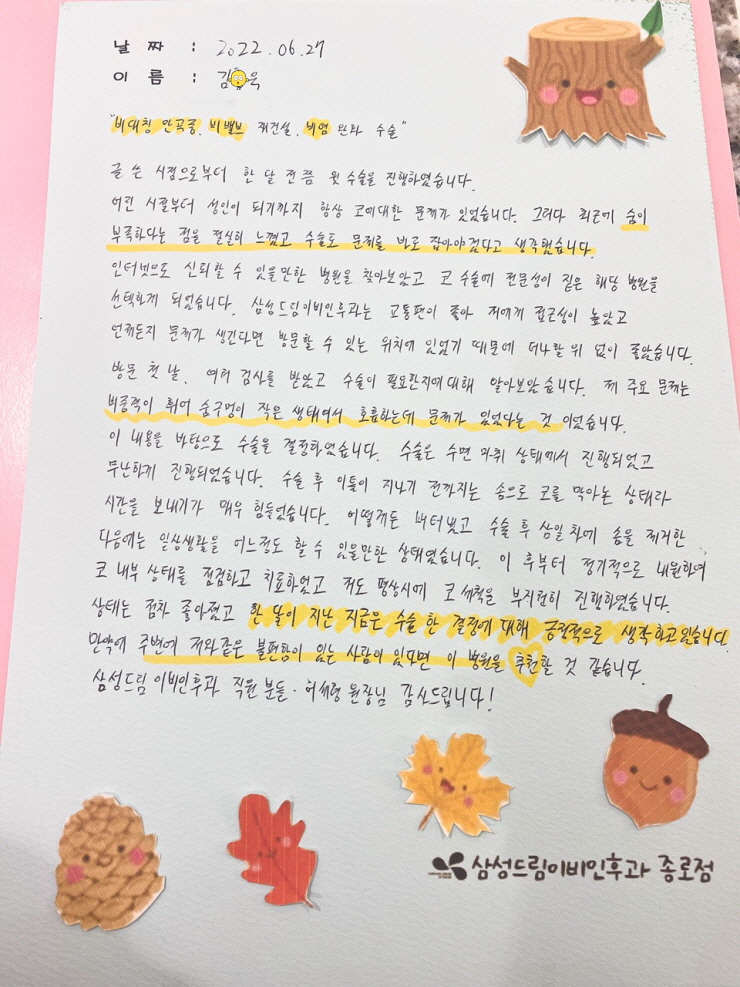 날 짜 : 2022.06.27
이 름 : 김 욱
"비대칭 만곡증, 비밸브 재건설, 비염 완화 수술"
글 쓴 시점으로부터 한 달 전쯤 윗 수술을 진행하였습니다.
어린 시절부터 성인이 되기까지 항상 코에대한 문제가 있었습니다. 그러다 최근에 숨이
부족하다는 점을 절실히 느꼈고 수술로 문제를 바로 잡아야겠다고 생각했습니다.
인터넷으로 신뢰할 수 있을만한 병원을 찾아보았고 코 수술에 전문성이 짙은 해당 병원을
선택하게 되었습니다. 삼성드림이비인후과는 교통편이 좋아 저에게 접근성이 높았고
언제든지 문제가 생긴다면 방문할 수 있는 위치에 있었기 때문에 더나할 위 없이 좋았습니다.
방문 첫 날, 여러 검사를 받았고 수술이 필요한지에대해 알아보았습니다. 제 주요 문제는
비중격이 휘어 숨구멍이 작은 상태여서 호흡하는데 문제가 있었다는 것 이었습니다.
이 내용을 바탕으로 수술을 결정하였습니다. 수술은 수면 마취 상태에서 진행되었고
무난하게 진행되었습니다. 수술 후 이틀이 지나기 전까지는 솜으로 코를 막아논 상태라
시간을 보내기가 매우 힘들었습니다. 어떻게든 버텨냈고 수술 후 삼일 차에 솜을 제거한
다음에는 일상생활을 어느정도 할 수 있을만한 상태였습니다. 이 후부터 정기적으로 내원하여
코 내부 상태를 점검하고 치료하였고 저도 평상시에 코 세척을 부지런히 진행하였습니다.
상태는 점차 좋아졌고 한 달이 지난 지금은 수술 한 결정에 대해 긍정적으로 생각하고 있습니다.
만약에 주변에 저와같은 불편함이 있는 사람이 있다면 이 병원을 추천할 것 같습니다.
삼성드림 이비인후과 직원 분들 · 허채령 원장님 감사드립니다!
삼성드림이비인후과 종로점